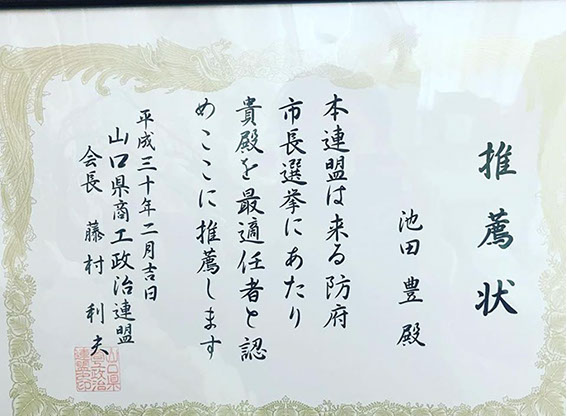 推薦状
池田豊殿
本連盟は来る防府
市長選挙にあたり
貴殿を最適任者と認
めここに推薦します
平成三十年二月吉日
山口県商工政治連盟
会長 藤村利夫